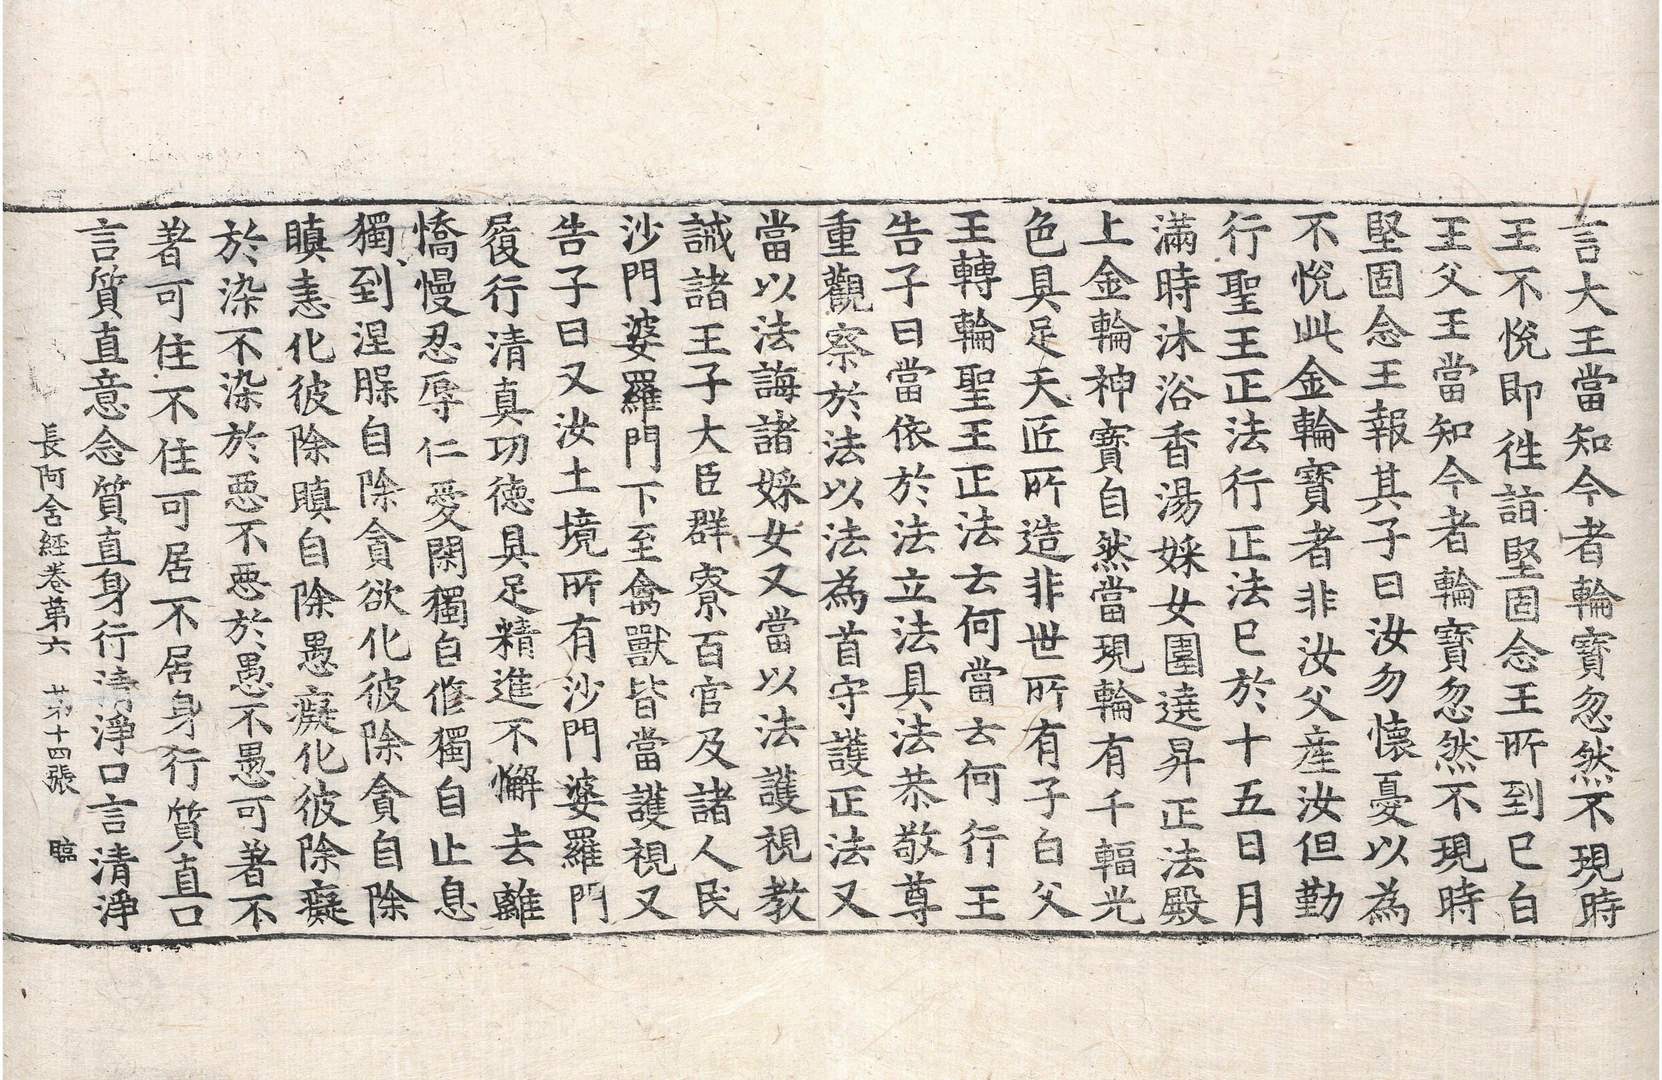 言大王當知今者輪寶忽然不現時
王不悅即徃詣堅固念王所到已白
王父王當知今者輪寶忽然不現時
堅固念王報其子曰汝勿懷憂以為
不悅此金輪寶者非汝父產汝但勤
行聖王正法行正法已於十五日月
滿時沐浴香湯婇女圍遶昇正法殿
上金輪神寶自然當現輪有千輻光
色具足天匠所造非世所有子白父
王轉輪聖王正法云何當云何行王
告子曰當依於法立法具法恭敬尊
重觀察於法以法為首守護正法又
當以法誨諸婇女又當以法護視教
誡諸王子大臣群寮百官及諸人民
沙門婆羅門下至禽獸皆當護視又
告子曰又汝土境所有沙門婆羅門
履行清真功德具足精進不懈去離
憍慢忍辱仁愛閑獨自修獨自止息
獨到涅槃自除貪欲化彼除貪自除
瞋恚化彼除瞋自除愚癡化彼除癡
於染不染於惡不惡於愚不愚可著不
著可住不住可居不居身行質直口
言質直意念質直身行清淨口言清淨
長阿含經卷第六 苐十四張 臨